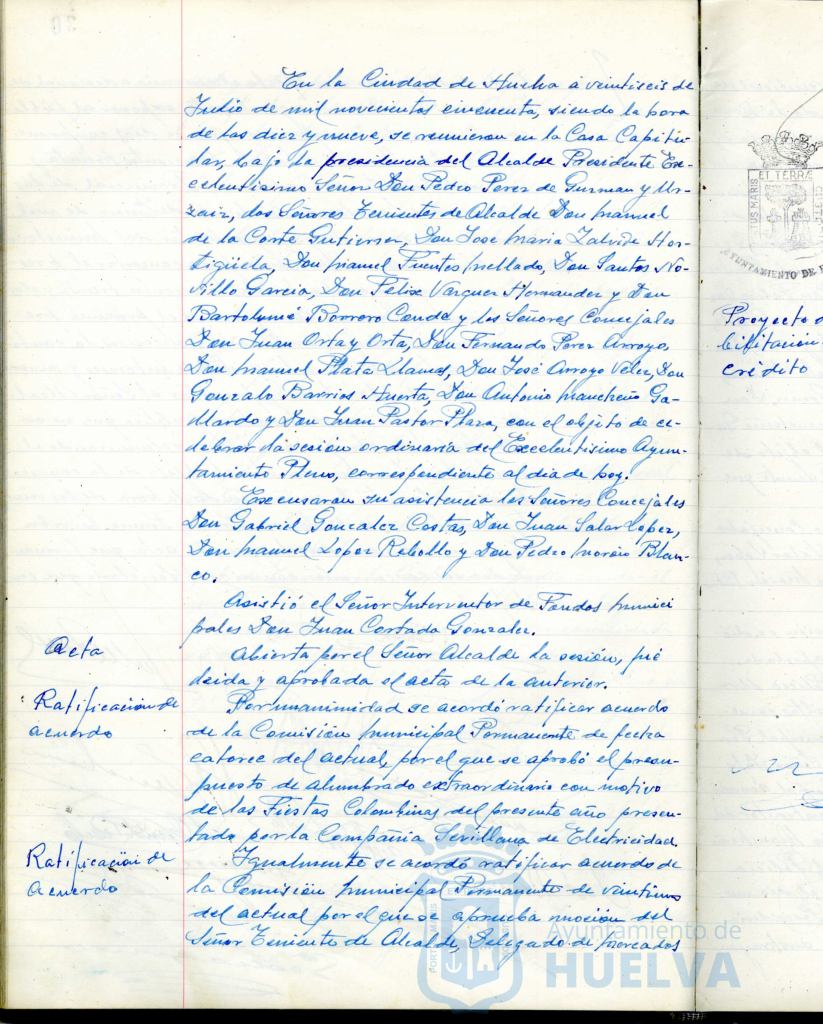 En la Ciudad de Huelva a veintiseis de
Julio de mil novecientos cincuenta, siendo la hora
de las diez y nueve, se reunieron en la Casa Capitu-
lar, bajo la presidencia del Alcalde Presidente Ex-
celentisimo Señor Don Pedro Perez de Guzman y Ur-
zaiz, los Señores Tenientes de Alcalde Don Manuel
de la Corte Gutierrez, Don Jose Maria Zalvide Hor-
tigüela, Don Manuel Fuentes Mellado, Don Santos No-
villo Garcia, Don Felix Vazquez Hernandez y Don
Bartolomé Borrero Conde y los Señores Concejales
Don Juan Orta y Orta, Don Fernando Perez Arroyo,
Don Manuel Plata Llamas, Don José Arroyo Velez, Don
Gonzalo Barrios Huerta, Don Antonio Mancheño Ga-
llardo y Don Juan Pastor Plaza, con el objeto de ce-
lebrar la sesión ordinaria del Excelentisimo Ayun-
tamiento Pleno, correspondiente al dia de hoy.
Excusaron su asistencia los Señores Concejales
Don Gabriel Gonzalez Costas, Don Juan Salar Lopez,
Don Manuel Lopez Rebollo y Don Pedro Morón Blan-
co.
Asistió el Señor Interventor de Fondos Munici
pales Don Juan Cortada Gonzalez.
Acta
Abierta por el Señor Alcalde la sesión, fué
leida y aprobada el acta de la anterior.
Ratificación de
acuerdo
Por unanimidad se acordó ratificar acuerdo
de la Comisión Municipal Permanente de fecha
catorce del actual, por el que se aprobó el presu-
puesto de alumbrado extraordinario con motivo
de las Fiestas Colombinas del presente año presen-
tado por la Compañia Sevillana de Electricidad.
Ratificación de
acuerdo
Igualmente se acordó ratificar acuerdo de
la Comisión Municipal Permanente de veintiuno
del actual por el que se aprueba moción del
Señor Teniente de Alcalde, Delegado de Mercados
Proyecto
crédito
ET TERRÆ
AYUNTAMIENTO DE
Ayuntamiento de
HUELVA